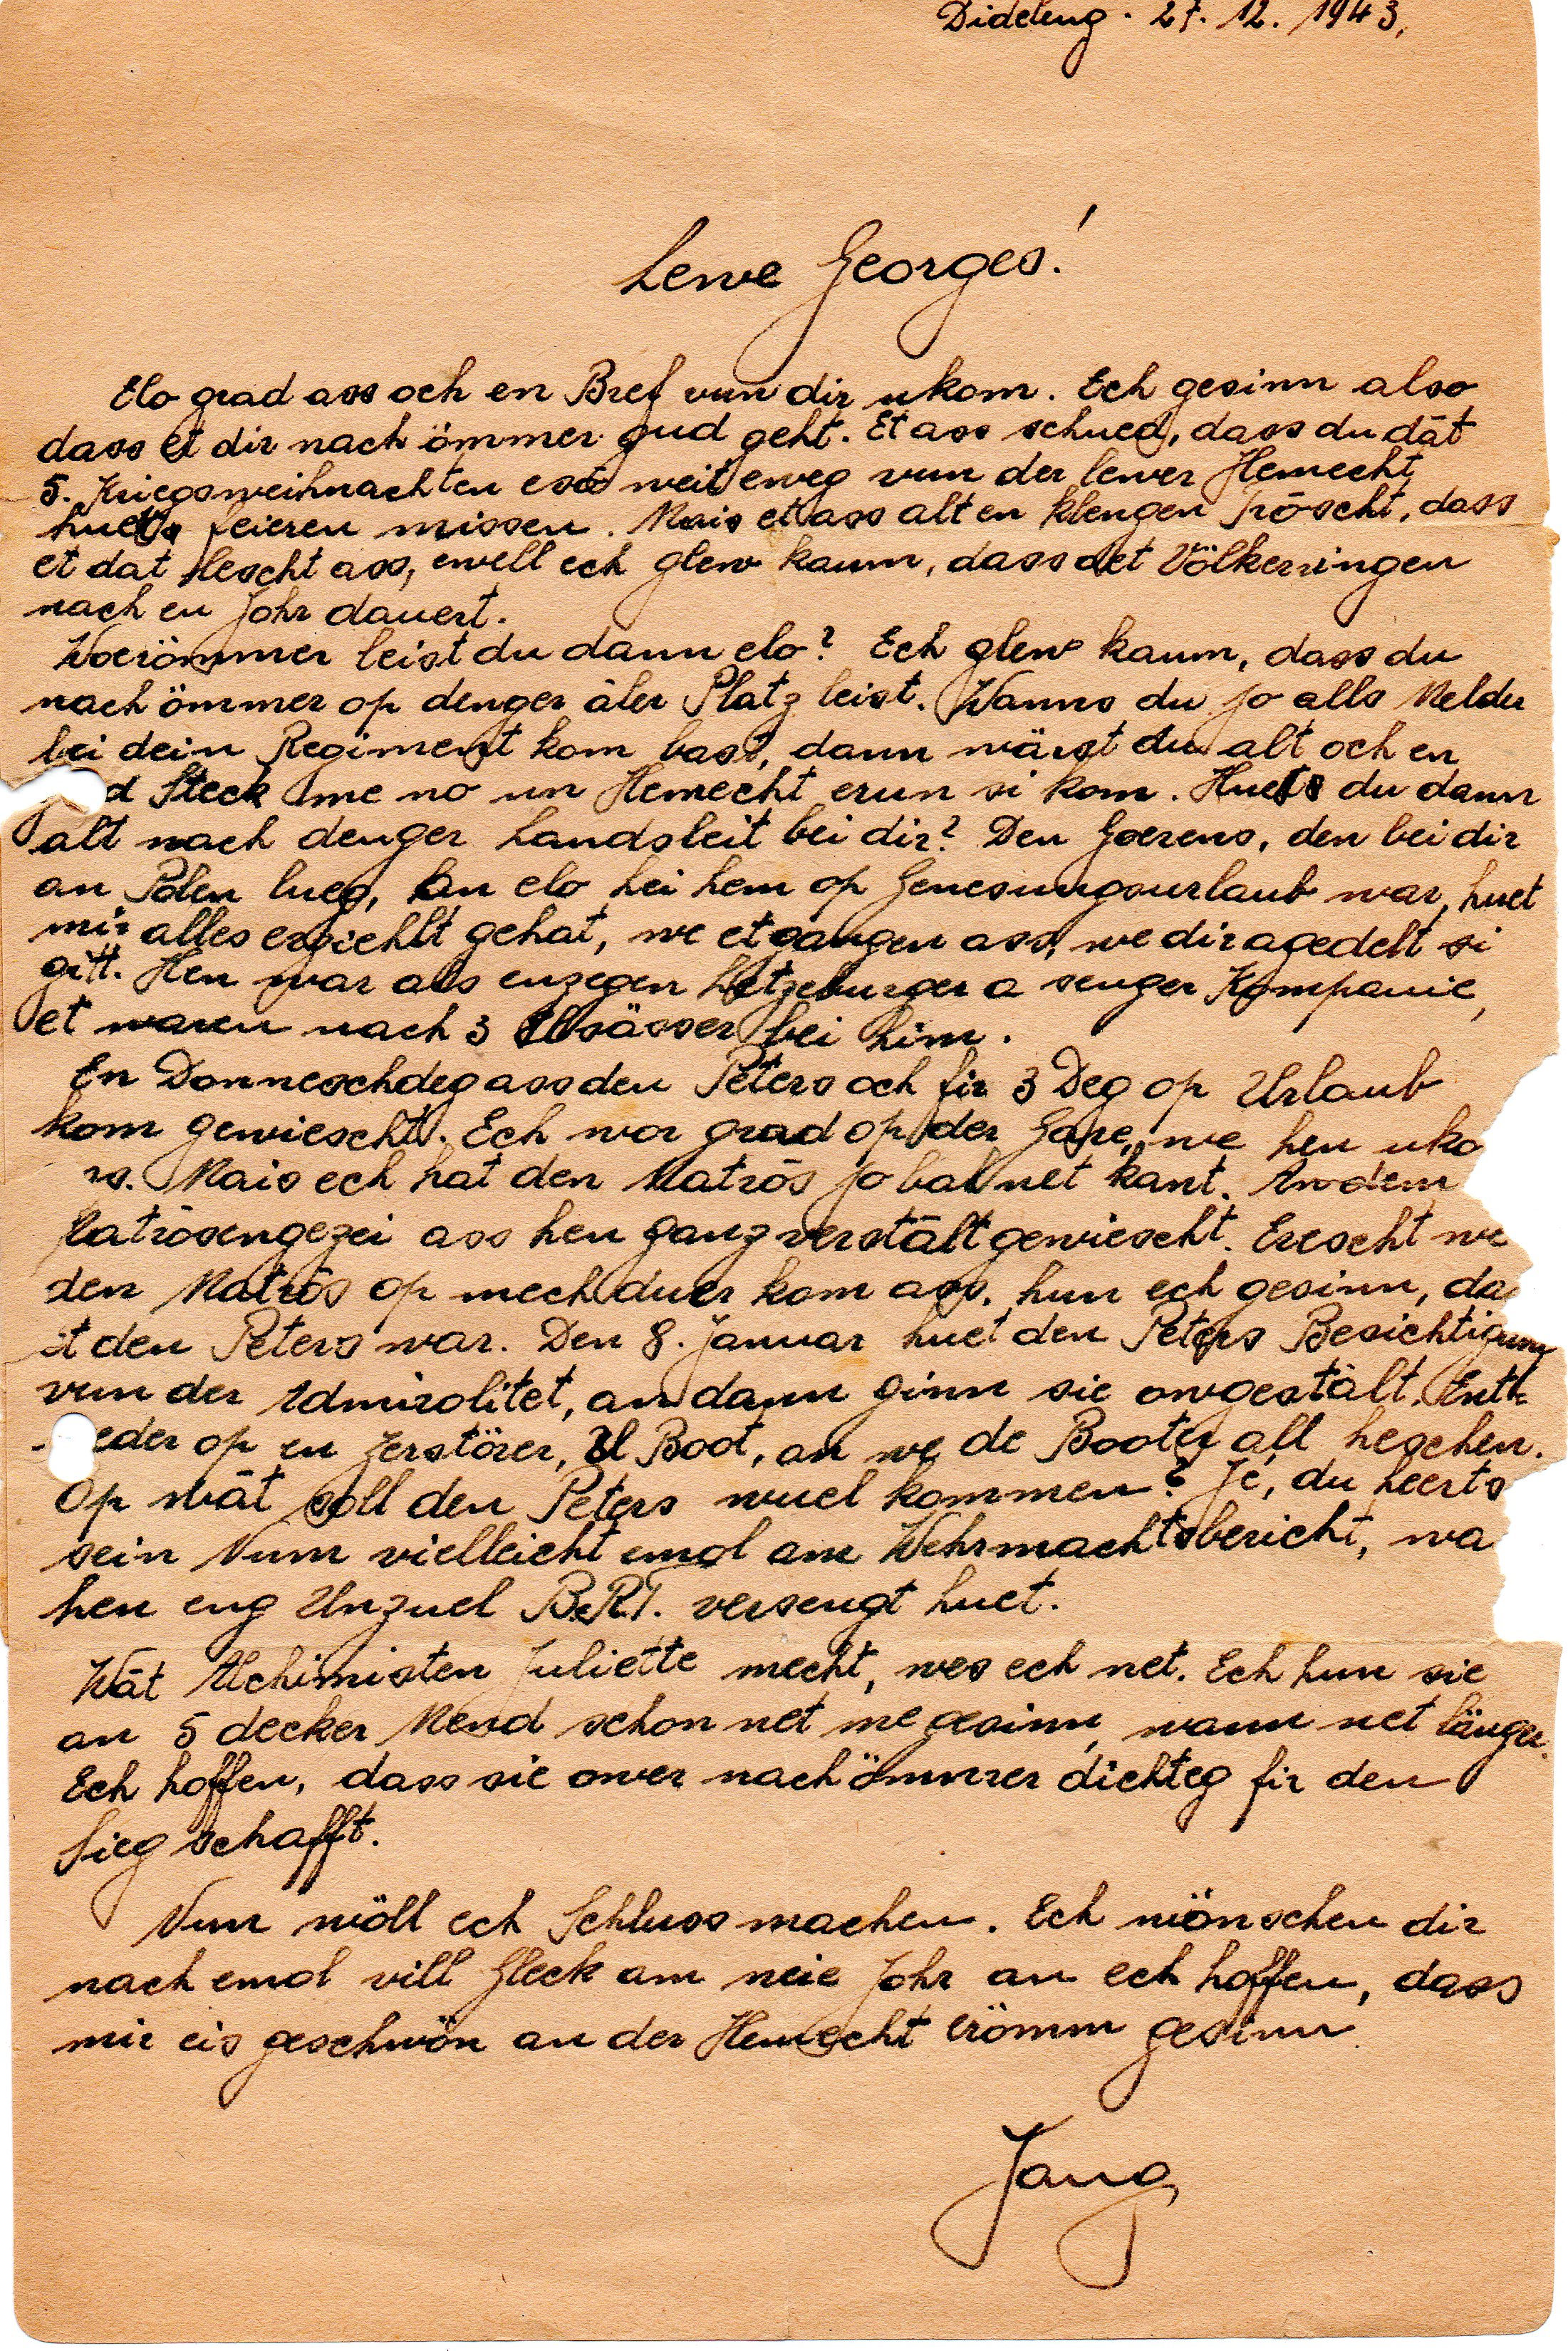 Dideleng. 27. 12. 1943.
Lewe Georges!
Elo grad ass och en Bref vun dir ukom. Ech gesinn also
dass et dir nach ömmer gud geht. Et ass schued, dass du dāt
5. Kriegsweihnachten eso weit eweg vun der lewer Hemecht
huets feieren missen. Mais et ass alt en klengen Trōscht, dass
et dat lescht ass, ewell ech glew kaum, dass det Völkerringen
nach en Johr dauert.
Woerömmer leist du dann elo? Ech glew kaum, dass du
nach ömmer op denger āler Platz leist. Wanns du jo alls Melder
bei dein Regiment kom bast, dann wärst du alt och en
d Steck me no un Hemecht erun si kom. Huets du dann
alt nach denger Landsleit bei dir? Den Goerens, den bei dir
an Polen lueg, an elo hei hem op Genesungsurlaub war, huet
mir alles erziehlt gehat, we et gangen ass, we dir agedelt si
gitt. Hen war als enzegen Letzeburger a senger Kompanie,
et waren nach 3 Elsässer bei him.
En Donneschdeg ass den Peters och fir 3 Deg op Urlaub
kom gewiescht. Ech wor grad op der Gare, we hen uko
Mais ech hat den Matrōs jo bal net kant. An dem
atrōsengezei ass hen ganz verstālt gewiescht. Erescht we
den Matrōs op mech duer kom ass, hun ech gesinn, da
t den Peters war. Den 8. Januar huet den Peters Besichtigung
vun der Admirolitet, an dann ginn sie ongestālt. Entt
eder op en Zerstörer, U Boot, an we de Booter all heschen.
Op wāt soll den Peters wuel kommen? Jé, du heerts
sein Num vielleicht emol am Wehrmachtsbericht, wa
hen eng Unzuel B.R.T. versengt huet.
Wāt Alchimisten Juliette mecht, wes ech net. Ech hun sie
an 5 decker Mend schon net me gesinn, wann net länger.
Ech hoffen, dass sie ower nach ömmer dichteg fir den
Sieg schafft.
Nun wöll ech Schluss machen. Ech wönschen dir
nach emol vill Gleck am neie Johr an ech hoffen, dass
mir eis geschwön an der Hemecht erömm gesinn.
Jang